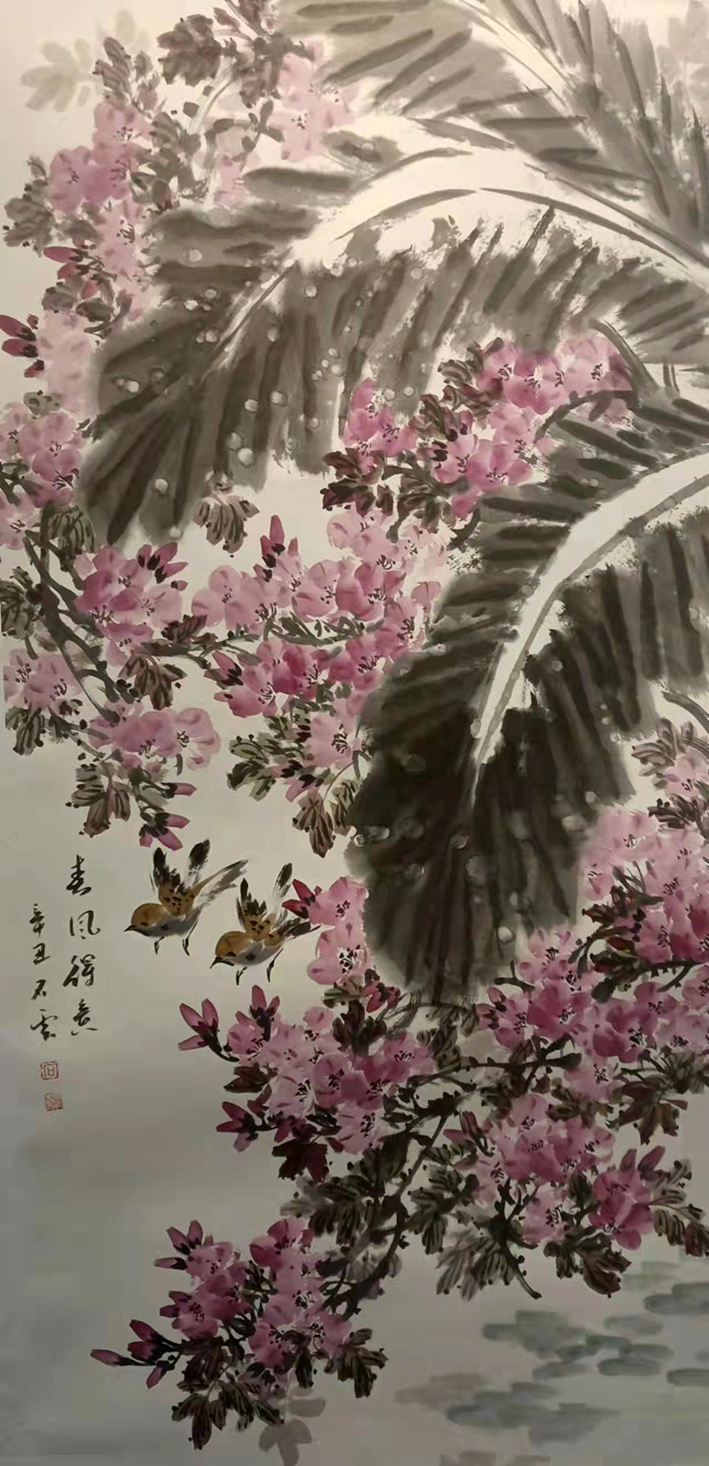 春风得意
辛丑石云